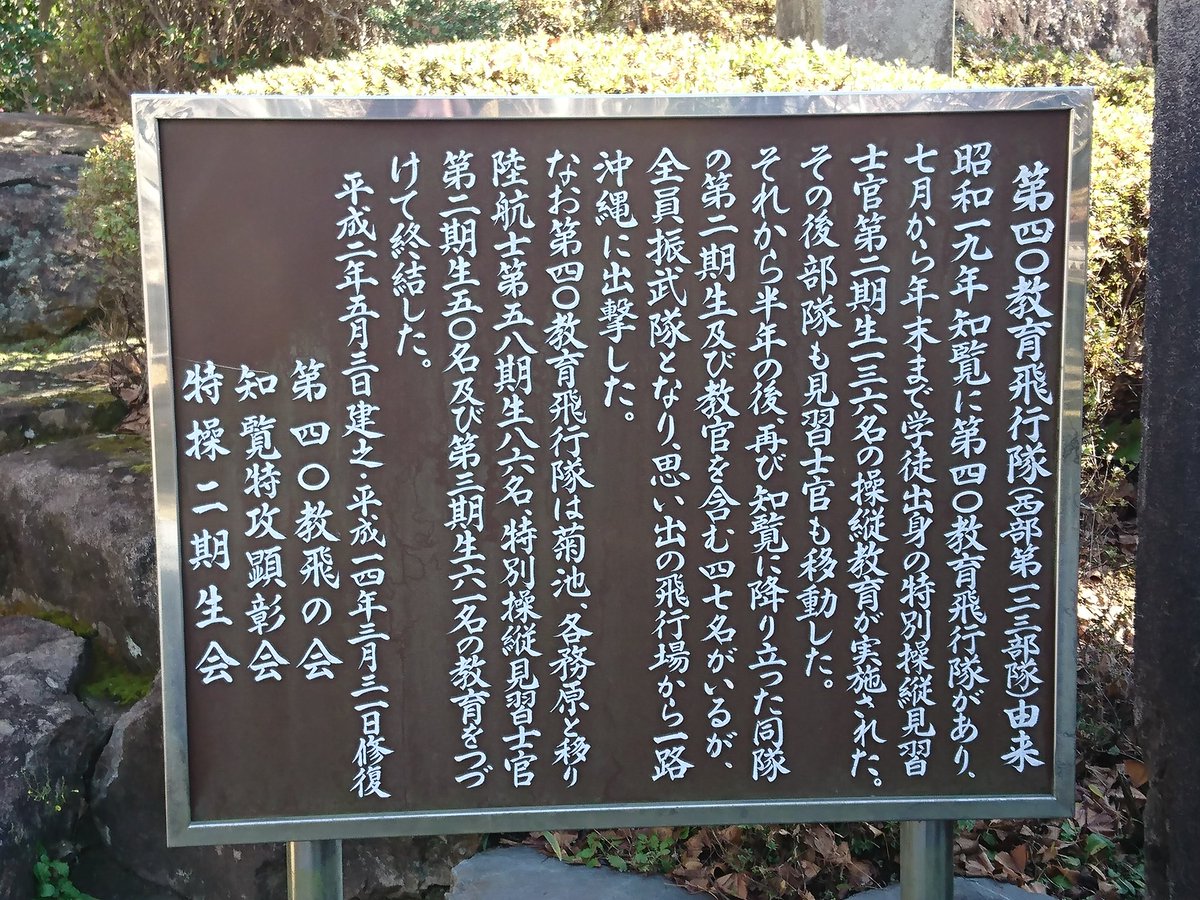 第四〇教育飛行隊(西部第一三三部隊)由来
昭和一九年知覧に第四〇教育飛行隊があり、
七月から年末まで学徒出身の特別操縦見習
士官第二期生一三六名の操縦教育が実施された。
その後部隊も見習士官も移動した。
それから半年の後、再び知覧に降り立った同隊
の第二期生及び教官を含む四七名がいるが、
全員振武隊となり、思い出の飛行場から一路
沖縄に出撃した。
なお第四〇教育飛行隊は菊池、各務原と移り
陸航士第五八期生八六名、特別操縦見習士官
第二期生五〇名及び第三期生六一名の教育をつづ
けて終結した。
平成二年五月三日建之・平成一四年三月三一日修復
第四〇教飛の会
知覧特攻顕彰会
特操二期生会